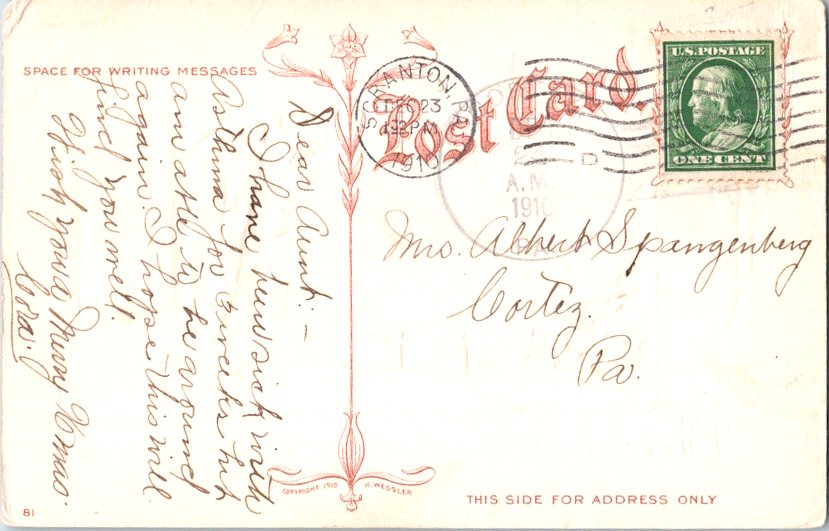 SPACE FOR WRITING MESSAGES
Post Card.
SCRANTON PA.
DEC 23
PM
1910
A.M.
1910
PA
D
U.S. POSTAGE
ONE CENT
Dear Aunt:—
I have been sick with
Asthma for weeks but
am able to be around
again. I hope this will
find you well.
Wish you a Merry Xmas.
Cora.
Mrs. Albert Spangenberg
Cortez.
Pa.
COPYRIGHT 1910 H. WESSLER
THIS SIDE FOR ADDRESS ONLY
81